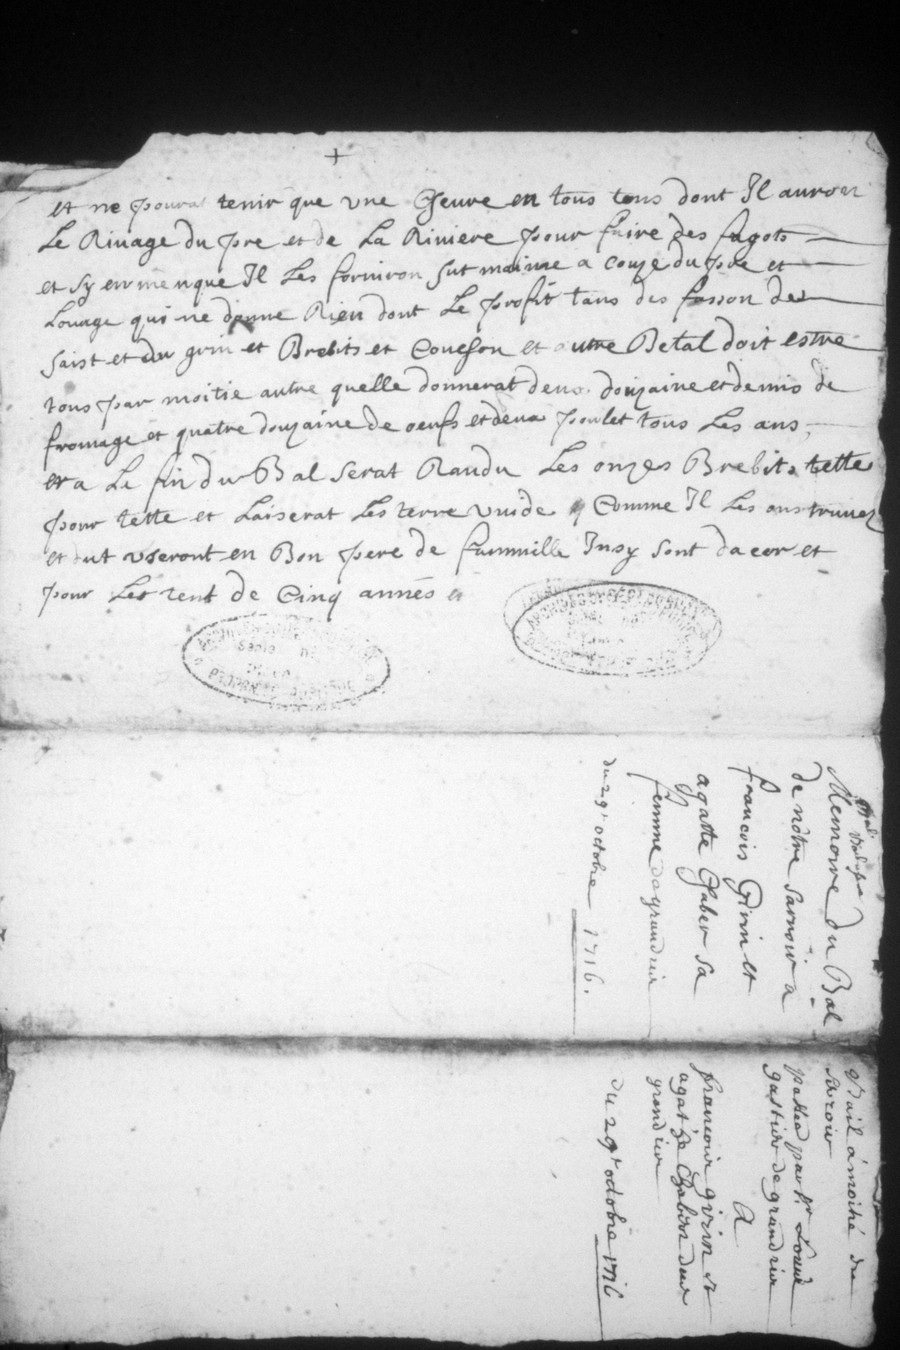 +
et ne pourat tenir que une Chevre en tous tens dont Il auron
Le Rivage du pre et de La Riviere pour faire des fagots
et sy en menque Il Les forniron sut maime a coupé du pre et
Lovage qui ne donne Rien dont Le profit tans des fesson de
et du grin et Brebits et Couchon et autre Betal doit estre
tous par moitie autre quelle donnerat deux douzaine et demis de
fromage et quatre douzaine de oeufs et deux poulet tous Les ans
et a La fin du Bal Serat Randu Les onzes Brebits tette
pour tette et Laiserat Les terre vuide Comme Il Les ons truvez
et tut useront en Bon pere de fammille Insy Sont dacor et
pour Les tent de Cinq annés
Memoire du Bal
de nôtre Sarnoir a
francois Givin et
agatte Chaber sa
femme de grandrie
du 29e octobre 1716.
Bail à moitié du
sarroir
passé par Sr
de grandrie
A
francois givin et
agathe Chabert de
grandrie
du 29e octobre 1716